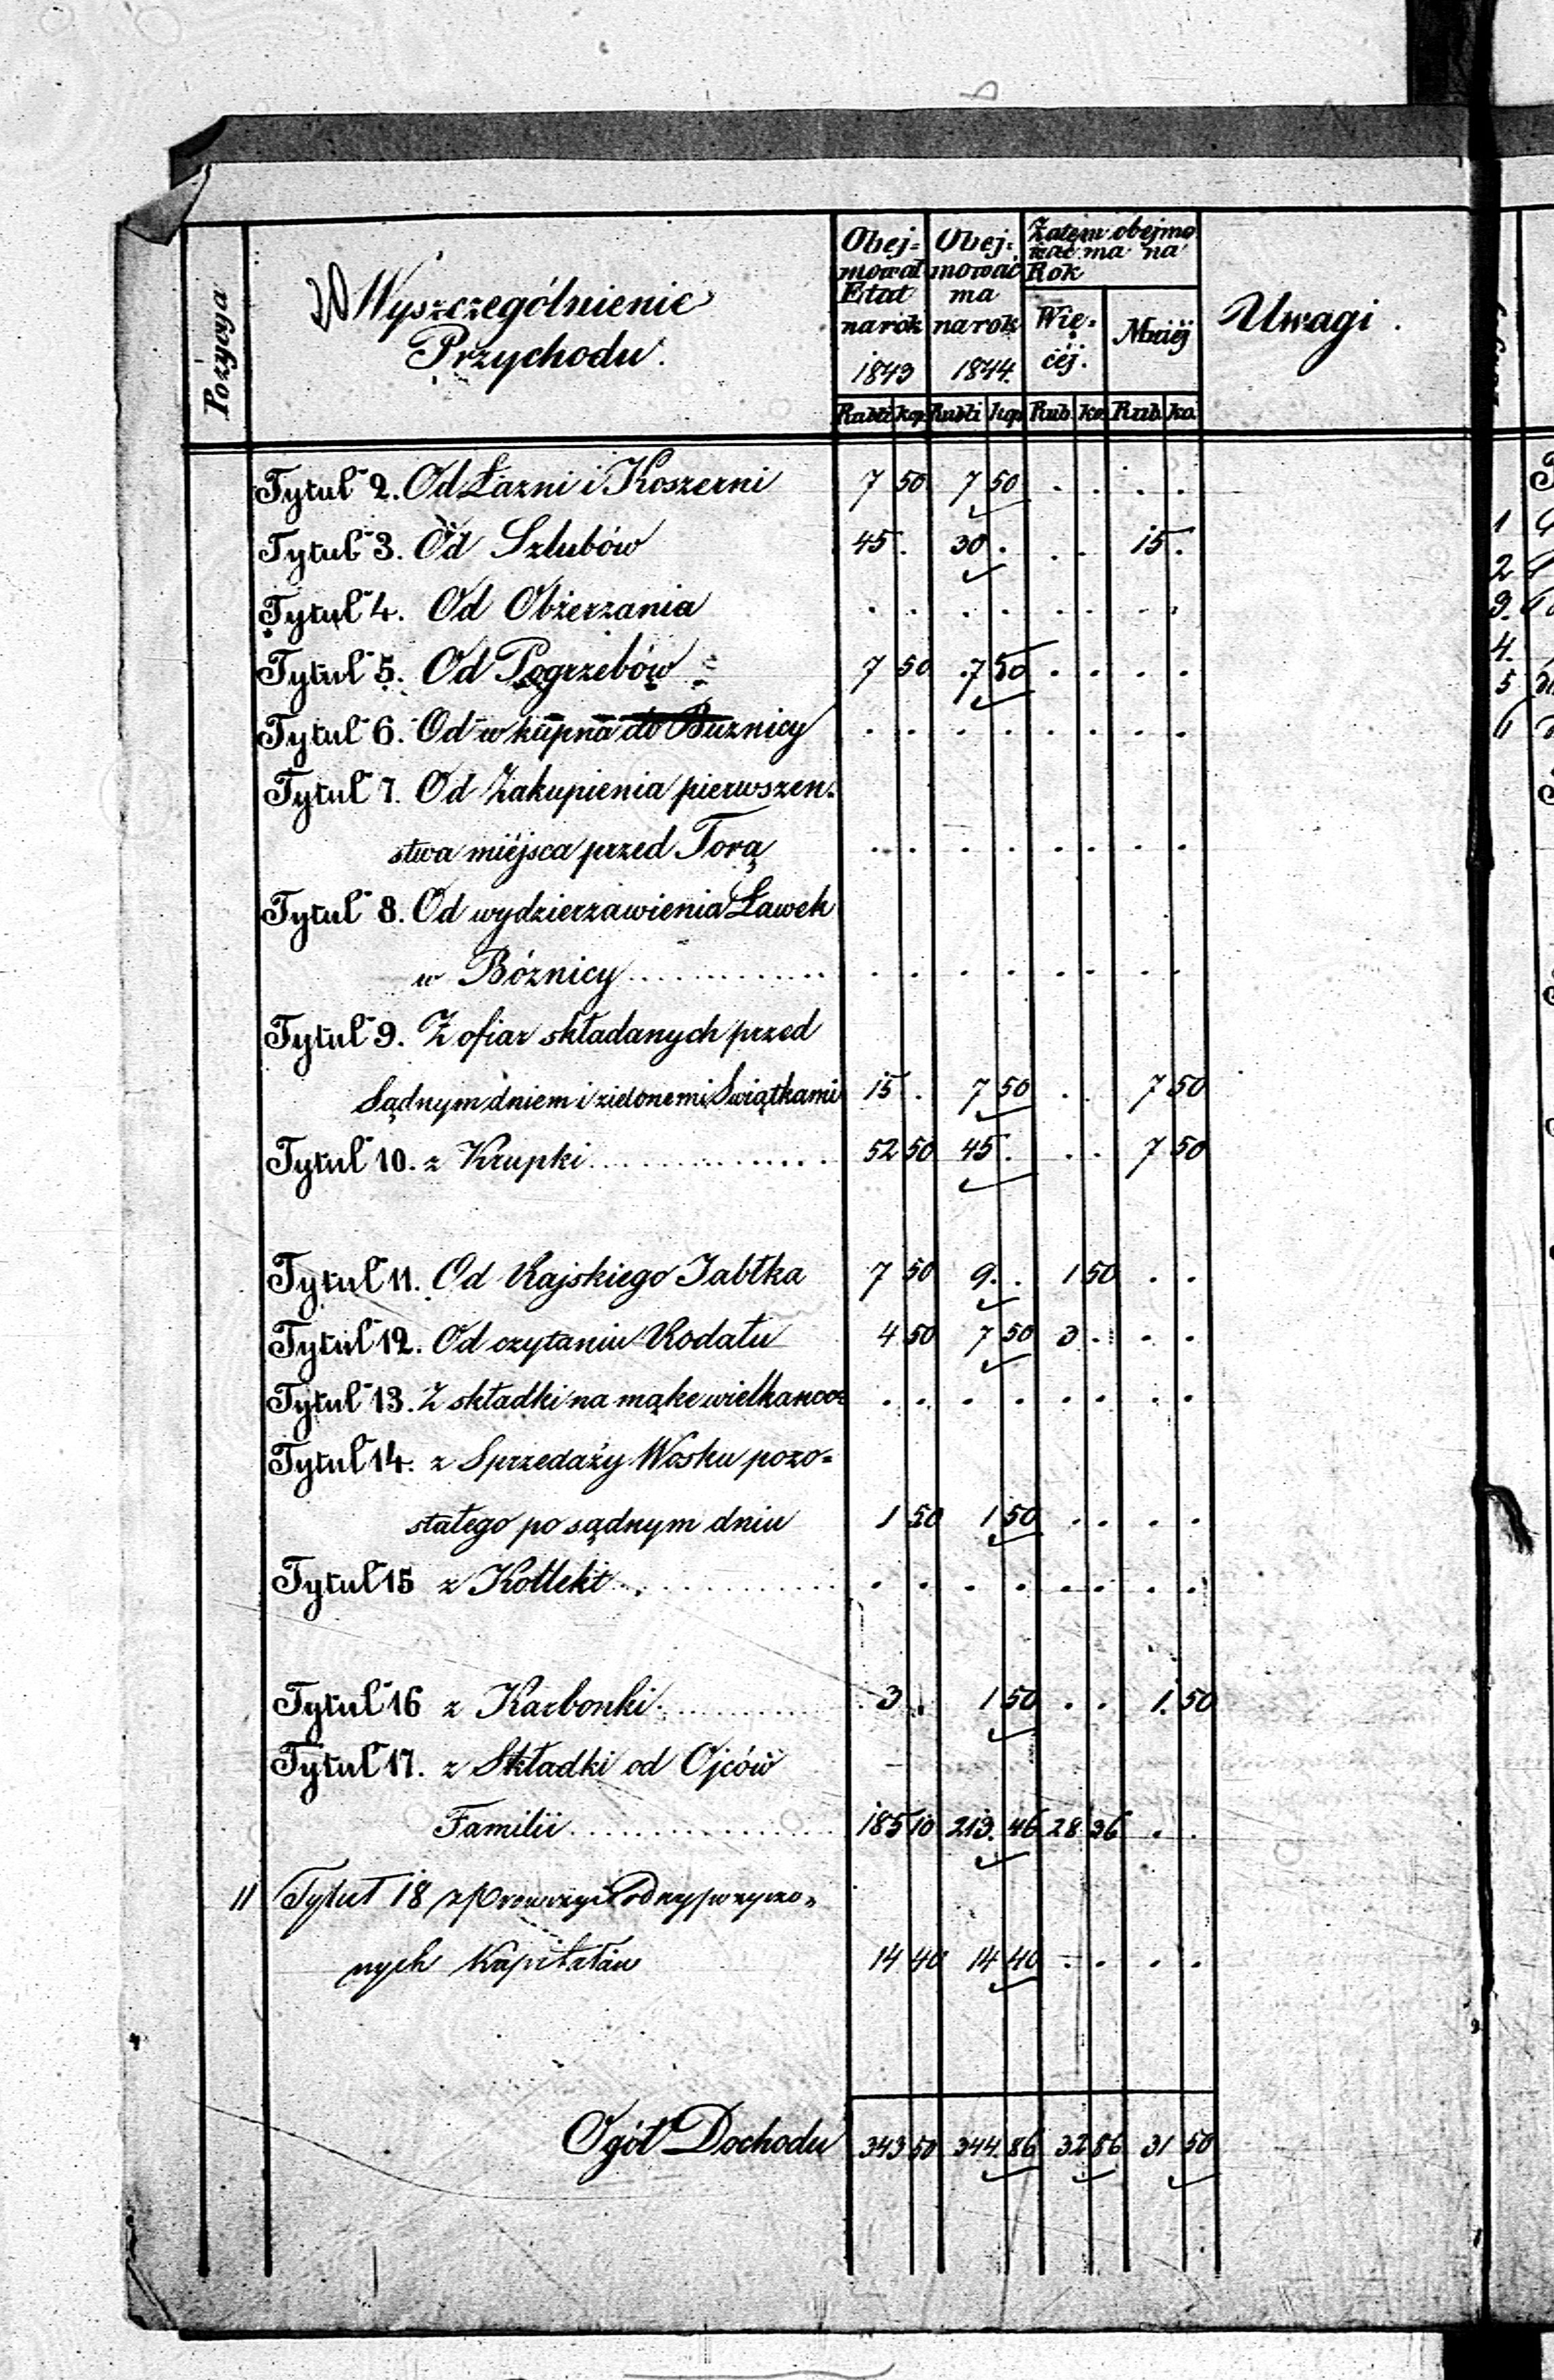 Pozycja
Wyszczególnienie
Przychodu.
Obej=
mował
Etat
na rok
1843
Obej=
mować
ma
na rok
1844.
Zatem obejmo
wać ma na
Rok
Wię=
céj.
Mniéj
Uwagi.
Rubli kop Rubli kop Rub. ko. Rub. ko.
Tytuł 2. Od Łazni i Koszerni 7 50 7 50 . . . .
Tytuł 3. Od Szlubów 45 . 30 . . . 15 .
Tytuł 4. Od Obżerzania . . . . . . . .
Tytuł 5. Od Pogrzebów 7 50 7 50 . . . .
Tytuł 6. Od wkupna do Buznicy . . . . . . . .
Tytuł 7. Od Zakupienia pierwszen=
stwa miéjsca przed Torą . . . . . . . .
Tytuł 8. Od wydzierzawienia Ławek
w Bóznicy . . . . . . . .
Tytuł 9. Z ofiar składanych przed
Sądnym dniem i zielonemi Swiątkami 15 . 7 50 . . 7 50
Tytuł 10. z Krupki 52 50 45 . . . 7 50
Tytuł 11. Od Rajskiego Jabłka 7 50 9 . 1 50 . .
Tytuł 12. Od czytaniu Rodału 4 50 7 50 3 . . .
Tytuł 13. Z składki na mąke wielkanoc . . . . . . . .
Tytuł 14. z Sprzedaży Wosku pozo=
stałego po sądnym dniu 1 50 1 50 . . . .
Tytuł 15 z Kollekt . . . . . . . .
Tytuł 16 z Karbonki 3 . 1 50 . . 1. 50
Tytuł 17. z Składki od Ojców
Familii 185 10 213. 46 28 36 . .
11 Tytuł 18 z
nych Kapitałów 14 40 14 40 . . . .
Ogół Dochodu 343 50 344. 86 32 86 31 50
1
2
3.
4.
5
6